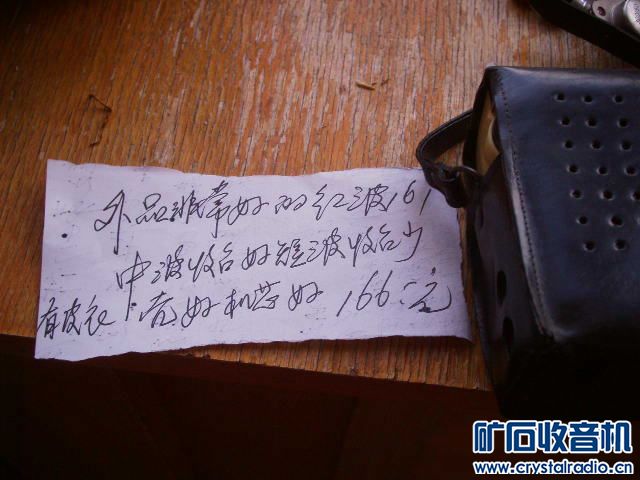 外品非常好的红波161
中波收台好短波收台少
有皮衣 音好机芯好 166:元
矿石收音机
www.crystalradio.cn